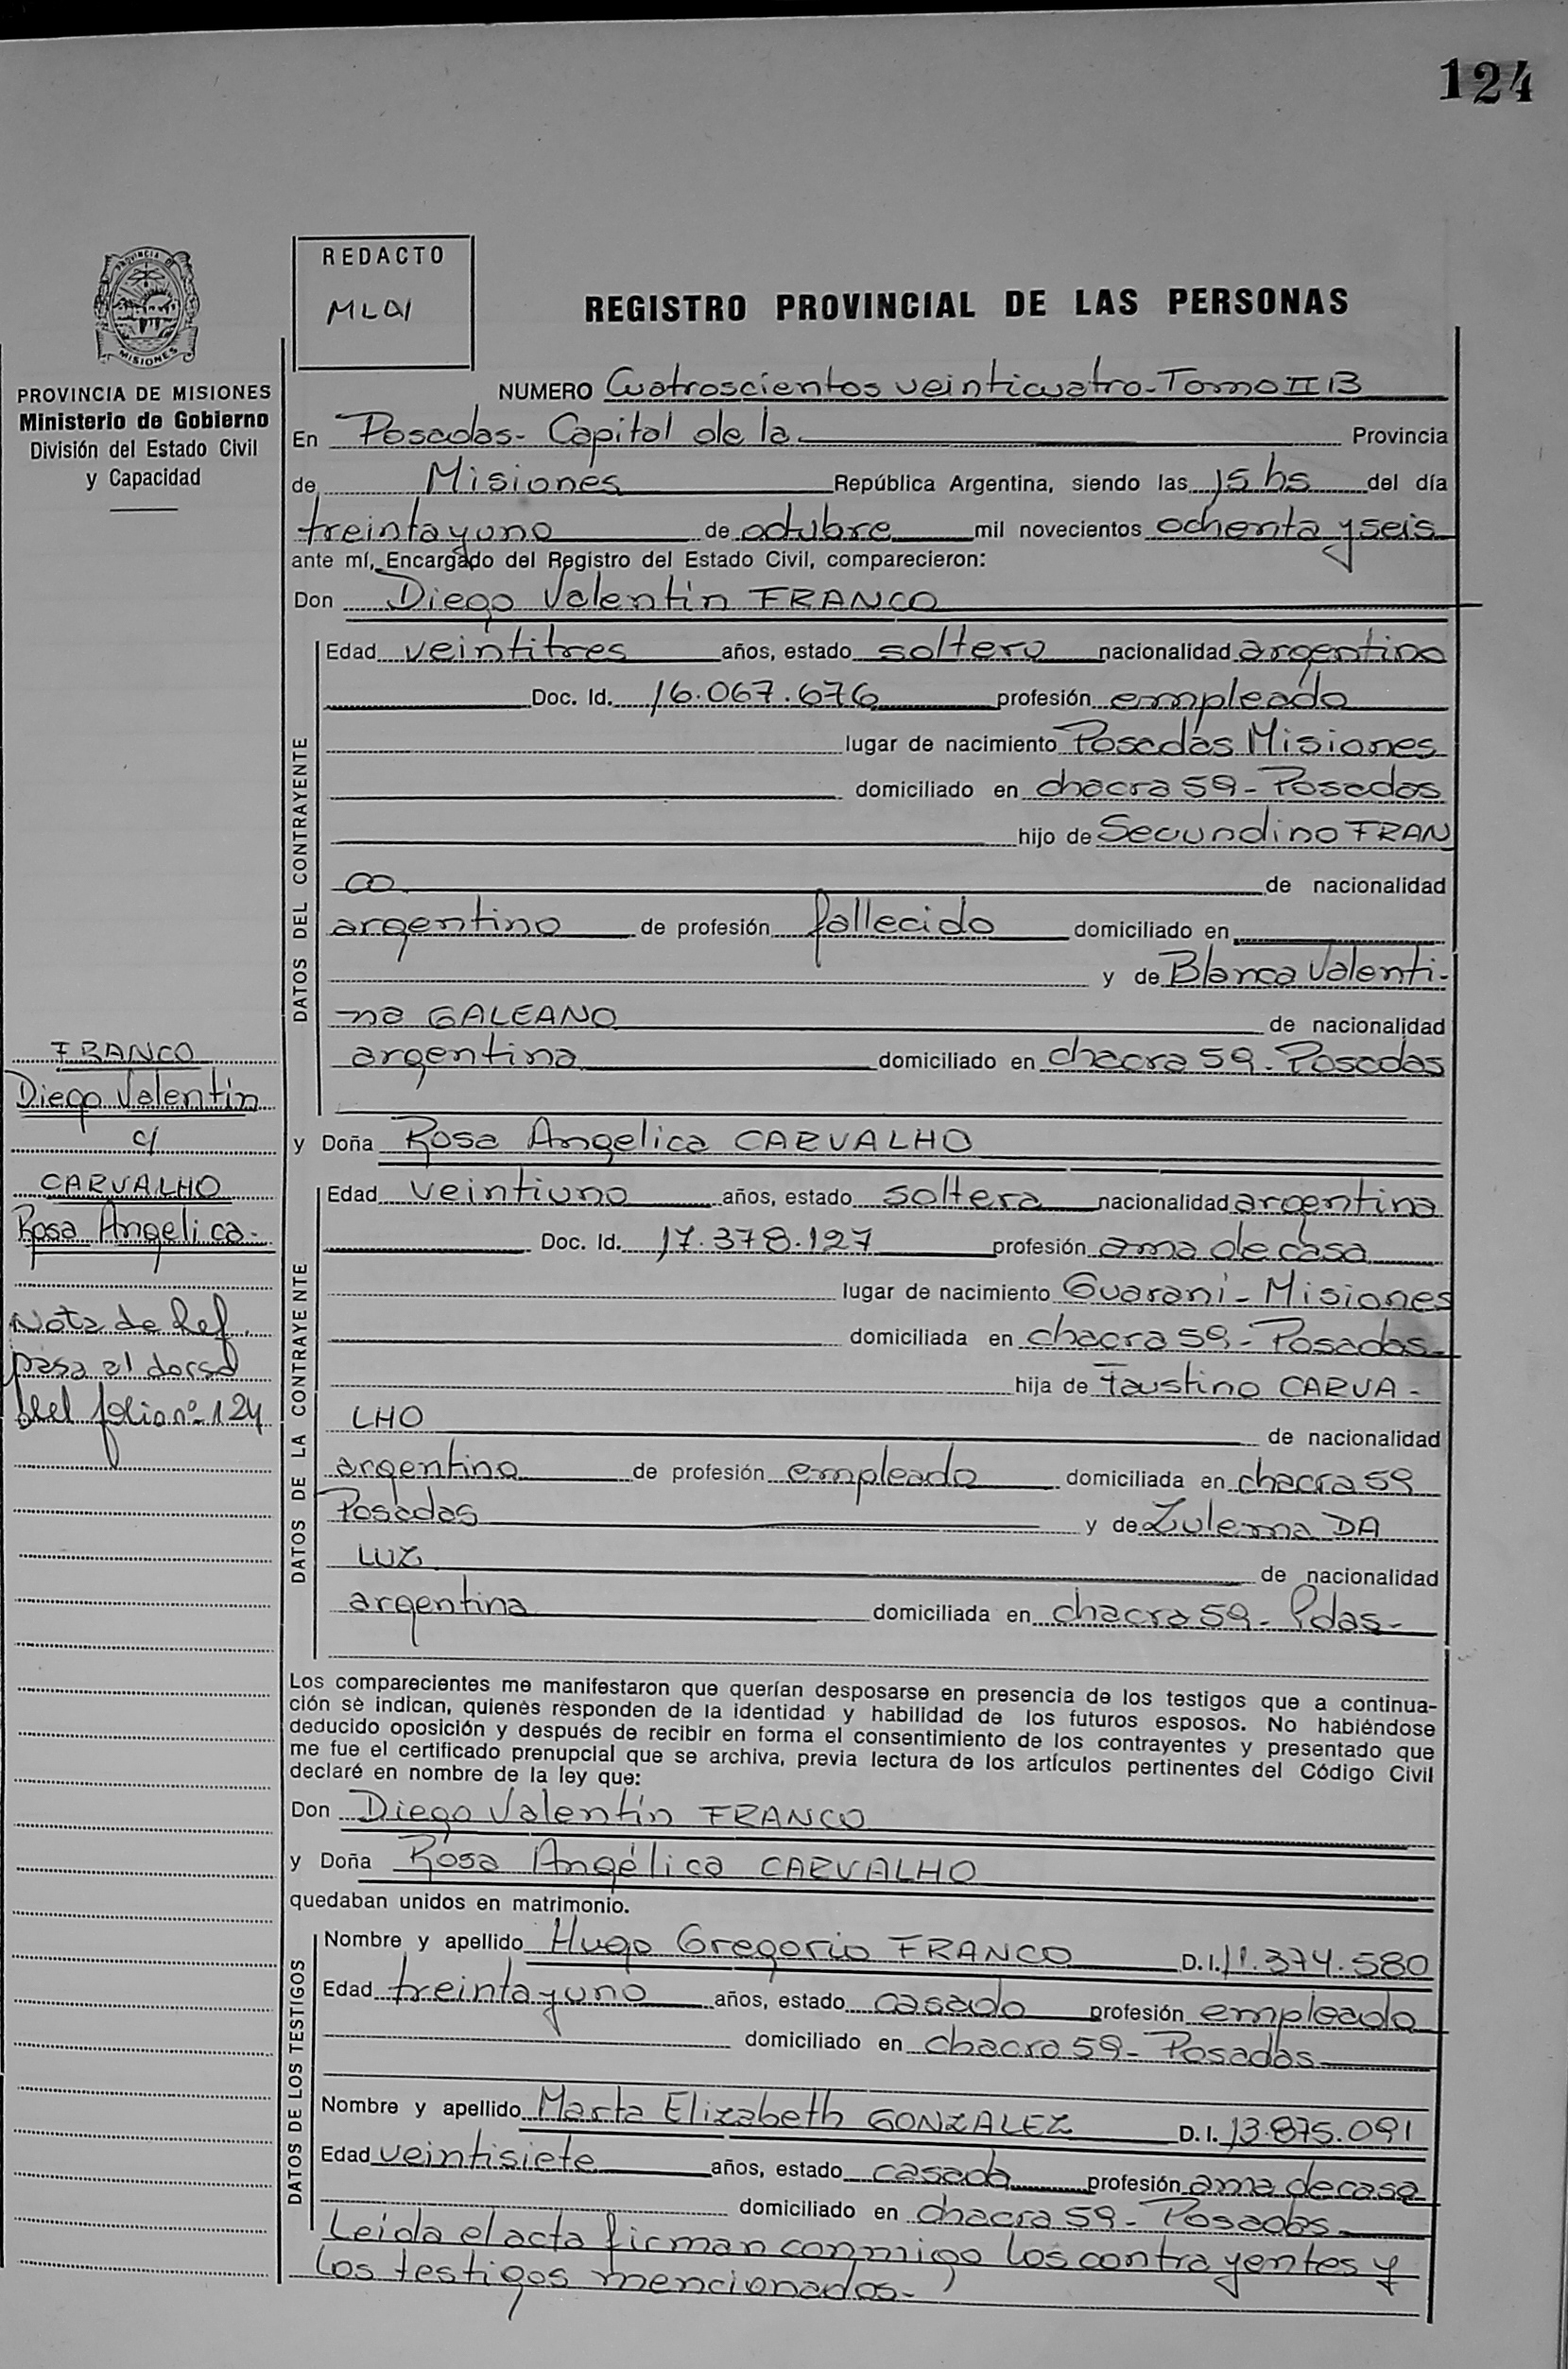 124
PROVINCIA DE
MISIONES
PROVINCIA DE MISIONES
Ministerio de Gobierno
División del Estado Civil
y Capacidad
REDACTO
REGISTRO PROVINCIAL DE LAS PERSONAS
NUMERO Cuatroscientos veinticuatro-Tomo II B
En Posadas- Capital de la Provincia
de Misiones República Argentina, siendo las 15 hs del día
treintayuno de octubre mil novecientos ochenta y seis
ante mí, Encargado del Registro del Estado Civil, comparecieron:
Don Diego Valentin FRANCO
DATOS DEL CONTRAYENTE
Edad veintitres años, estado soltero nacionalidad argentino
Doc. Id. 16.067.676 profesión empleado
lugar de nacimiento Posadas Misiones
domiciliado en chacra 59- Posadas
hijo de Secundino FRAN
CO de nacionalidad
argentino de profesión fallecido domiciliado en
y de Blanca Valenti-
na GALEANO de nacionalidad
argentina domiciliado en chacra 59- Posadas
FRANCO
Diego Valentin
c/
CARVALHO
Rosa Angelica-
Nota de Ref.
pasa al dorso
del folio nº 124
y Doña Rosa Angelica CARVALHO
DATOS DE LA CONTRAYENTE
Edad veintiuno años, estado soltera nacionalidad argentina
Doc. Id. 17.378.127 profesión ama de casa
lugar de nacimiento Guarani- Misiones
domiciliada en chacra 59- Posadas-
hija de Faustino CARVA-
LHO de nacionalidad
argentino de profesión empleado domiciliada en chacra 59
Posadas y de Zulema DA
LUZ de nacionalidad
argentina domiciliada en chacra 59- Pdas-
Los comparecientes me manifestaron que querían desposarse en presencia de los testigos que a continua-
ción se indican, quienes responden de la identidad y habilidad de los futuros esposos. No habiéndose
deducido oposición y después de recibir en forma el consentimiento de los contrayentes y presentado que
me fue el certificado prenupcial que se archiva, previa lectura de los artículos pertinentes del Código Civil
declaré en nombre de la ley que:
Don Diego Valentín FRANCO
y Doña Rosa Angélica CARVALHO
quedaban unidos en matrimonio.
DATOS DE LOS TESTIGOS
Nombre y apellido Hugo Gregorio FRANCO D.I. 11.374.580
Edad treintayuno años, estado casado profesión empleado
domiciliado en chacra 59- Posadas
Nombre y apellido Marta Elizabeth GONZALEZ D.I. 13.875.091
Edad veintisiete años, estado casada profesión ama de casa
domiciliado en chacra 59- Posadas
Leida el acta firman conmigo los contrayentes y
los testigos mencionados-